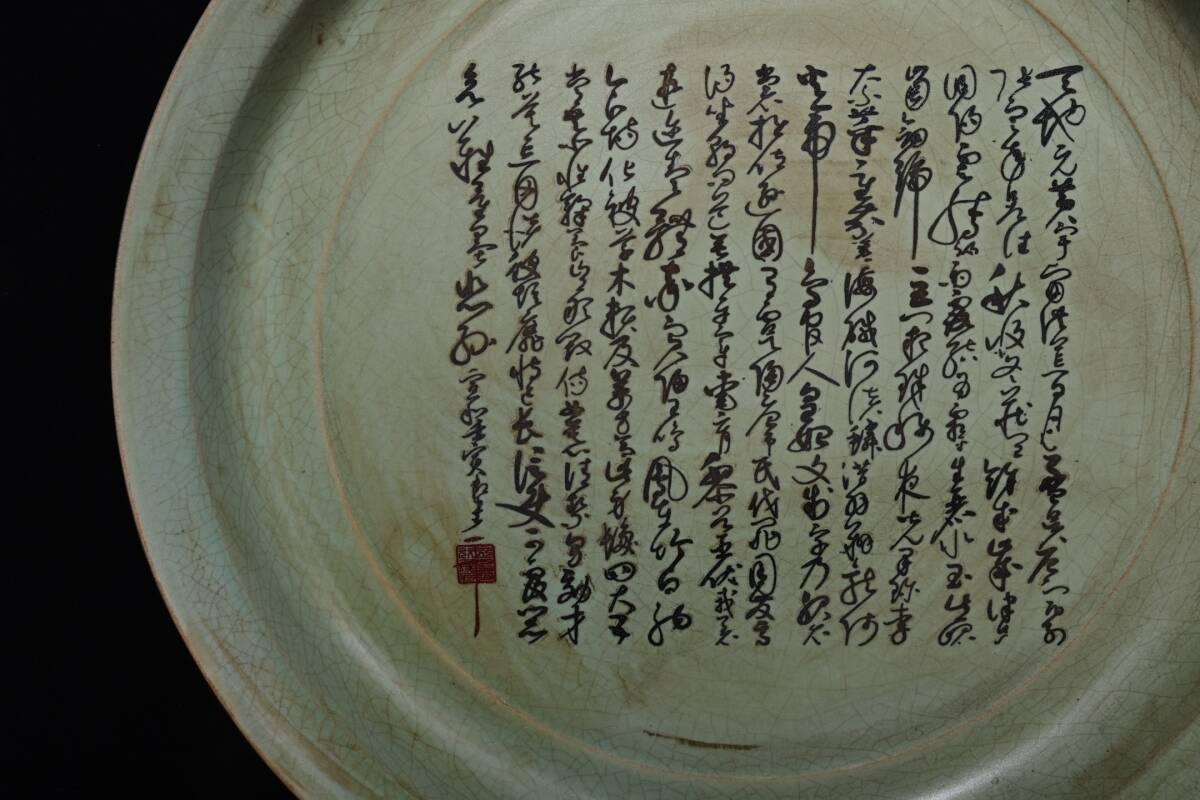 天地元黃宇宙洪荒日月盈昃辰宿列
張寒來暑往秋收冬藏閏餘成歲律呂
調陽雲騰致雨露結為霜金生麗水玉出崑
崗劍號巨闕珠稱夜光果珍李
柰菜重芥薑海鹹河淡鱗潛羽翔龍師
火帝鳥官人皇始制文字乃服衣
裳推位遜國有虞陶唐弔民伐罪周發商
湯坐朝問道垂拱平章愛育黎首臣伏戎羌
遐邇壹體率賓歸王鳴鳳在竹白駒
食場化被草木賴及萬方蓋此身髮四大五
常恭惟鞠養豈敢毀傷女慕清潔男效才
能莫忘罔談彼短靡恃己長信使可覆器
欲難量墨悲絲宣和壬寅御書